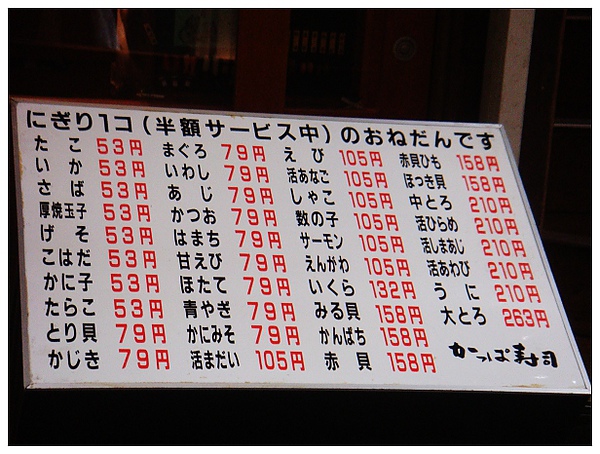 にぎり1コ(半額サービス中)のおねだんです
たこ 53円
いか 53円
さば 53円
厚焼玉子 53円
げそ 53円
こはだ 53円
かに子 53円
たらこ 53円
とり貝 79円
かじき 79円
まぐろ 79円
いわし 79円
あじ 79円
かつお 79円
はまち 79円
甘えび 79円
ほたて 79円
青やぎ 79円
かにみそ 79円
活まだい 105円
えび 105円
活あなご 105円
しゃこ 105円
数の子 105円
サーモン 105円
えんがわ 105円
いくら 132円
みる貝 158円
かんぱち 158円
赤貝 158円
赤貝ひも 158円
ほっき貝 158円
中とろ 210円
活ひらめ 210円
活しまあじ 210円
活あわび 210円
うに 210円
大とろ 263円
かっぱ寿司